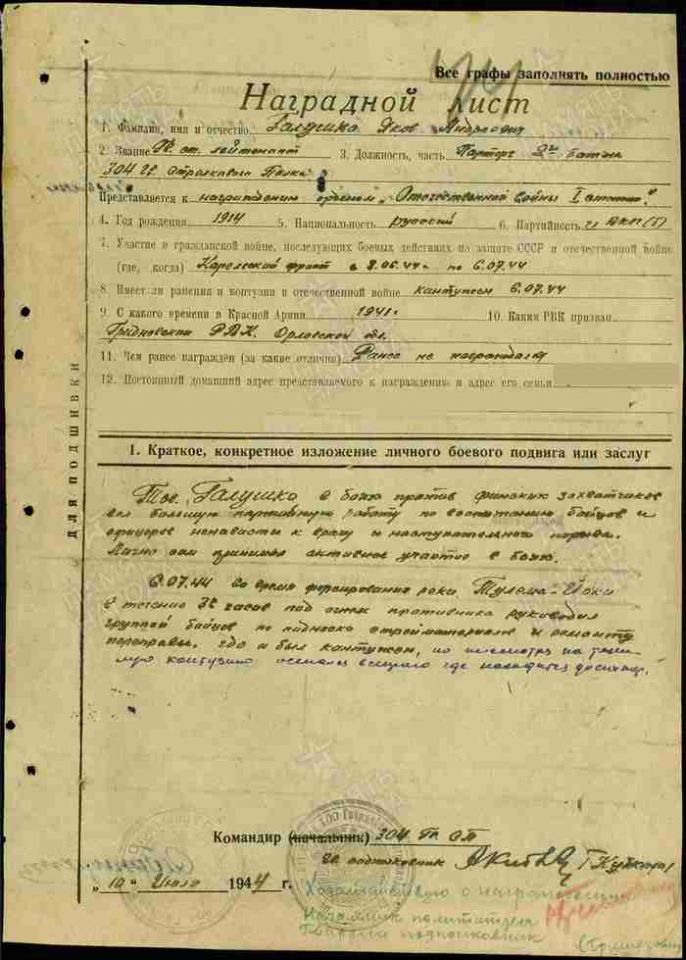 Все графы заполнять полностью
Наградной лист
1. Фамилия, имя и отчество Галушко Яков Андреевич
2. Звание Гв. ст. лейтенант 3. Должность, часть Парторг 2го батал.
304 Гв Стрелкового Полка
Представляется к награждению орденом "Отечественной Войны I степени".
4. Год рождения 1914 5. Национальность русский 6. Партийность чл ВКП(б)
7. Участие в гражданской войне, последующих боевых действиях по защите СССР и отечественной войне
(где, когда) Карельский фронт с 8.05.44г по 6.07.44
8. Имеет ли ранения и контузии в отечественной войне контужен 6.07.44
9. С какого времени в Красной Армии 1941г 10. Каким РВК призван
РВК Орловской обл.
11. Чем ранее награжден (за какие отличия) Ранее не награждался
12. Постоянный домашний адрес представляемого к награждению и адрес его семьи
для подшивки
1. Краткое, конкретное изложение личного боевого подвига или заслуг
Тов. Галушко в боях против финских захватчиков
вел большую партийную работу по воспитанию бойцов и
офицеров ненависти к врагу и наступательного порыва.
Лично сам принимал активное участие в боях.
6.07.44 во время форсирования реки Тулема-Йоки
в течение 32 часов под огнем противника руководил
группой бойцов по подноске стройматериалов и ремонту
переправы, где и был контужен, но несмотря на
контузию остался в
Командир (начальник) 304 Гв СП
Гв подполковник
"10" Июля 1944 г.
Ходатайствую о награждении
Начальник политотдела
Гвардии подполковник